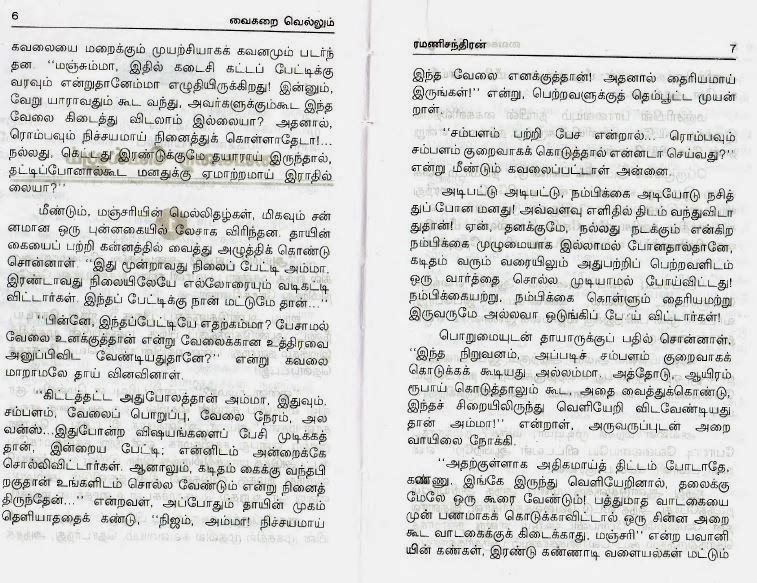 6 வைகறை வெல்லும்
கவலையை மறைக்கும் முயற்சியாகக் கவனமும் படர்ந்
தன. ‘‘மஞ்சும்மா, இதில் கடைசி கட்டப் பேட்டிக்கு
வரவும் என்றுதானேம்மா எழுதியிருக்கிறது! இன்னும்,
வேறு யாராவதும் கூட வந்து, அவர்களுக்கும்கூட இந்த
வேலை கிடைத்து விடலாம் இல்லையா? அதனால்,
ரொம்பவும் நிச்சயமாய் நினைத்துக் கொள்ளாதேடா!...
நல்லது, கெட்டது இரண்டுக்குமே தயாராய் இருந்தால்,
தட்டிப்போனால்கூட மனதுக்கு ஏமாற்றமாய் இராதில்
லையா?’’
மீண்டும், மஞ்சரியின் மெல்லிதழ்கள், மிகவும் சன்
னமான ஒரு புன்னகையில் லேசாக விரிந்தன. தாயின்
கையைப் பற்றி கன்னத்தில் வைத்து அழுத்திக் கொண்டு
சொன்னாள். ‘‘இது மூன்றாவது நிலைப் பேட்டி அம்மா.
இரண்டாவது நிலையிலேயே எல்லோரையும் வடிகட்டி
விட்டார்கள். இந்தப் பேட்டிக்கு நான் மட்டுமே தான்...’’
‘‘பின்னே, இந்தப்பேட்டியே எதற்கம்மா? பேசாமல்
வேலை உனக்குத்தான் என்று வேலைக்கான உத்திரவை
அனுப்பிவிட வேண்டியதுதானே?’’ என்று கவலை
மாறாமலே தாய் வினவினாள்.
‘‘கிட்டத்தட்ட அதுபோலத்தான் அம்மா, இதுவும்.
சம்பளம், வேலைப் பொறுப்பு, வேலை நேரம், அல
வன்ஸ்...இதுபோன்ற விஷயங்களைப் பேசி முடிக்கத்
தான், இன்றைய பேட்டி; என்னிடம் அன்றைக்கே
சொல்லிவிட்டார்கள். ஆனாலும், கடிதம் கைக்கு வந்தபி
றகுதான் உங்களிடம் சொல்ல வேண்டும் என்று நினைத்
திருந்தேன்...’’ என்றவள், அப்போதும் தாயின் முகம்
தெளியாததைக் கண்டு, ‘‘நிஜம், அம்மா! நிச்சயமாய்
ரமணிசந்திரன் 7
இந்த வேலை எனக்குத்தான்! அதனால் தைரியமாய்
இருங்கள்!’’ என்று, பெற்றவளுக்குத் தெம்பூட்ட முயன்
றாள்.
‘‘சம்பளம் பற்றி பேச என்றால்... ரொம்பவும்
சம்பளம் குறைவாகக் கொடுத்தால் என்னடா செய்வது?’’
என்று மீண்டும் கவலைப்பட்டாள் அன்னை.
அடிபட்டு அடிபட்டு, நம்பிக்கை அடியோடு நசித்
துப் போன மனது! அவ்வளவு எளிதில் திடம் வந்துவிடா
துதான்! ஏன், தனக்குமே, நல்லது நடக்கும் என்கிற
நம்பிக்கை முழுமையாக இல்லாமல் போனதால்தானே,
கடிதம் வரும் வரையிலும் அதுபற்றிப் பெற்றவளிடம்
ஒரு வார்த்தை சொல்ல முடியாமல் போய்விட்டது!
நம்பிக்கையற்று, நம்பிக்கை கொள்ளும் தைரியமற்று
இருவருமே அல்லவா ஒடுங்கிப் போய் விட்டார்கள்!
பொறுமையுடன் தாயாருக்குப் பதில் சொன்னாள்,
‘‘இந்த நிறுவனம், அப்படிச் சம்பளம் குறைவாகக்
கொடுக்கக் கூடியது அல்லம்மா. அத்தோடு, ஆயிரம்
ரூபாய் கொடுத்தாலும் கூட, அதை வைத்துக்கொண்டு,
இந்தச் சிறையிலிருந்து வெளியேறி விடவேண்டியது
தான் அம்மா!’’ என்றாள், அருவருப்புடன் அறை
வாயிலை நோக்கி.
‘‘அதற்குள்ளாக அதிகமாய்த் திட்டம் போடாதே,
கண்ணு. இங்கே இருந்து வெளியேறினால், தலைக்கு
மேலே ஒரு கூரை வேண்டும்! பத்துமாத வாடகையை
முன் பணமாகக் கொடுக்காவிட்டால் ஒரு சின்ன அறை
கூட வாடகைக்குக் கிடைக்காது, மஞ்சரி’’ என்ற பவானி
யின் கண்கள், இரண்டு கண்ணாடி வளையல்கள் மட்டும்